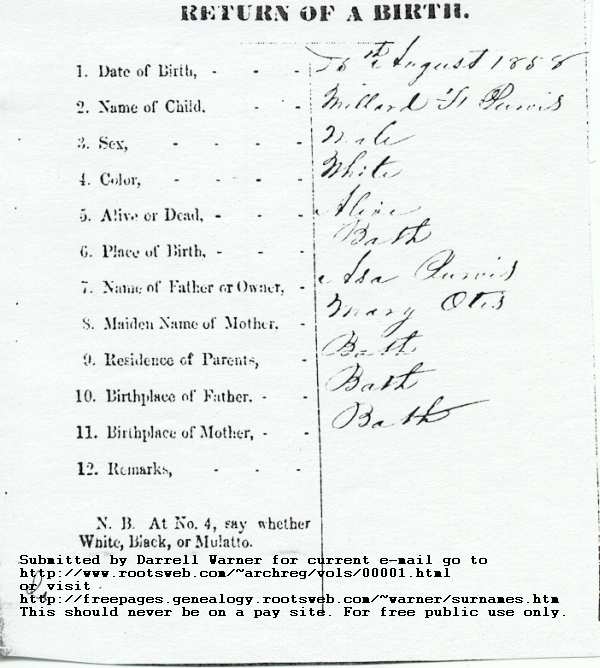 RETURN OF A BIRTH.
1. Date of Birth, - - - th August 1858
2. Name of Child. - - Millard F Purvis
3. Sex, - - - - Male
4. Color, - - - - White
5. Alive or Dead, - - - Alive
6. Place of Birth, - - - Bath
7. Name of Father or Owner, - Asa Purvis
8. Maiden Name of Mother. - Mary Otis
9. Residence of Parents, - Bath
10. Birthplace of Father. - - Bath
11. Birthplace of Mother, - - Bath
12. Remarks, - - -
N. B. At No. 4, say whether
White, Black, or Mulatto.
Submitted by Darrell Warner for current e-mail go to
http://www.rootsweb.com/~archreg/vols/00001.html
or visit
http://freepages.genealogy.rootsweb.com/~warner/surnames.htm
This should never be on a pay site. For free public use only.